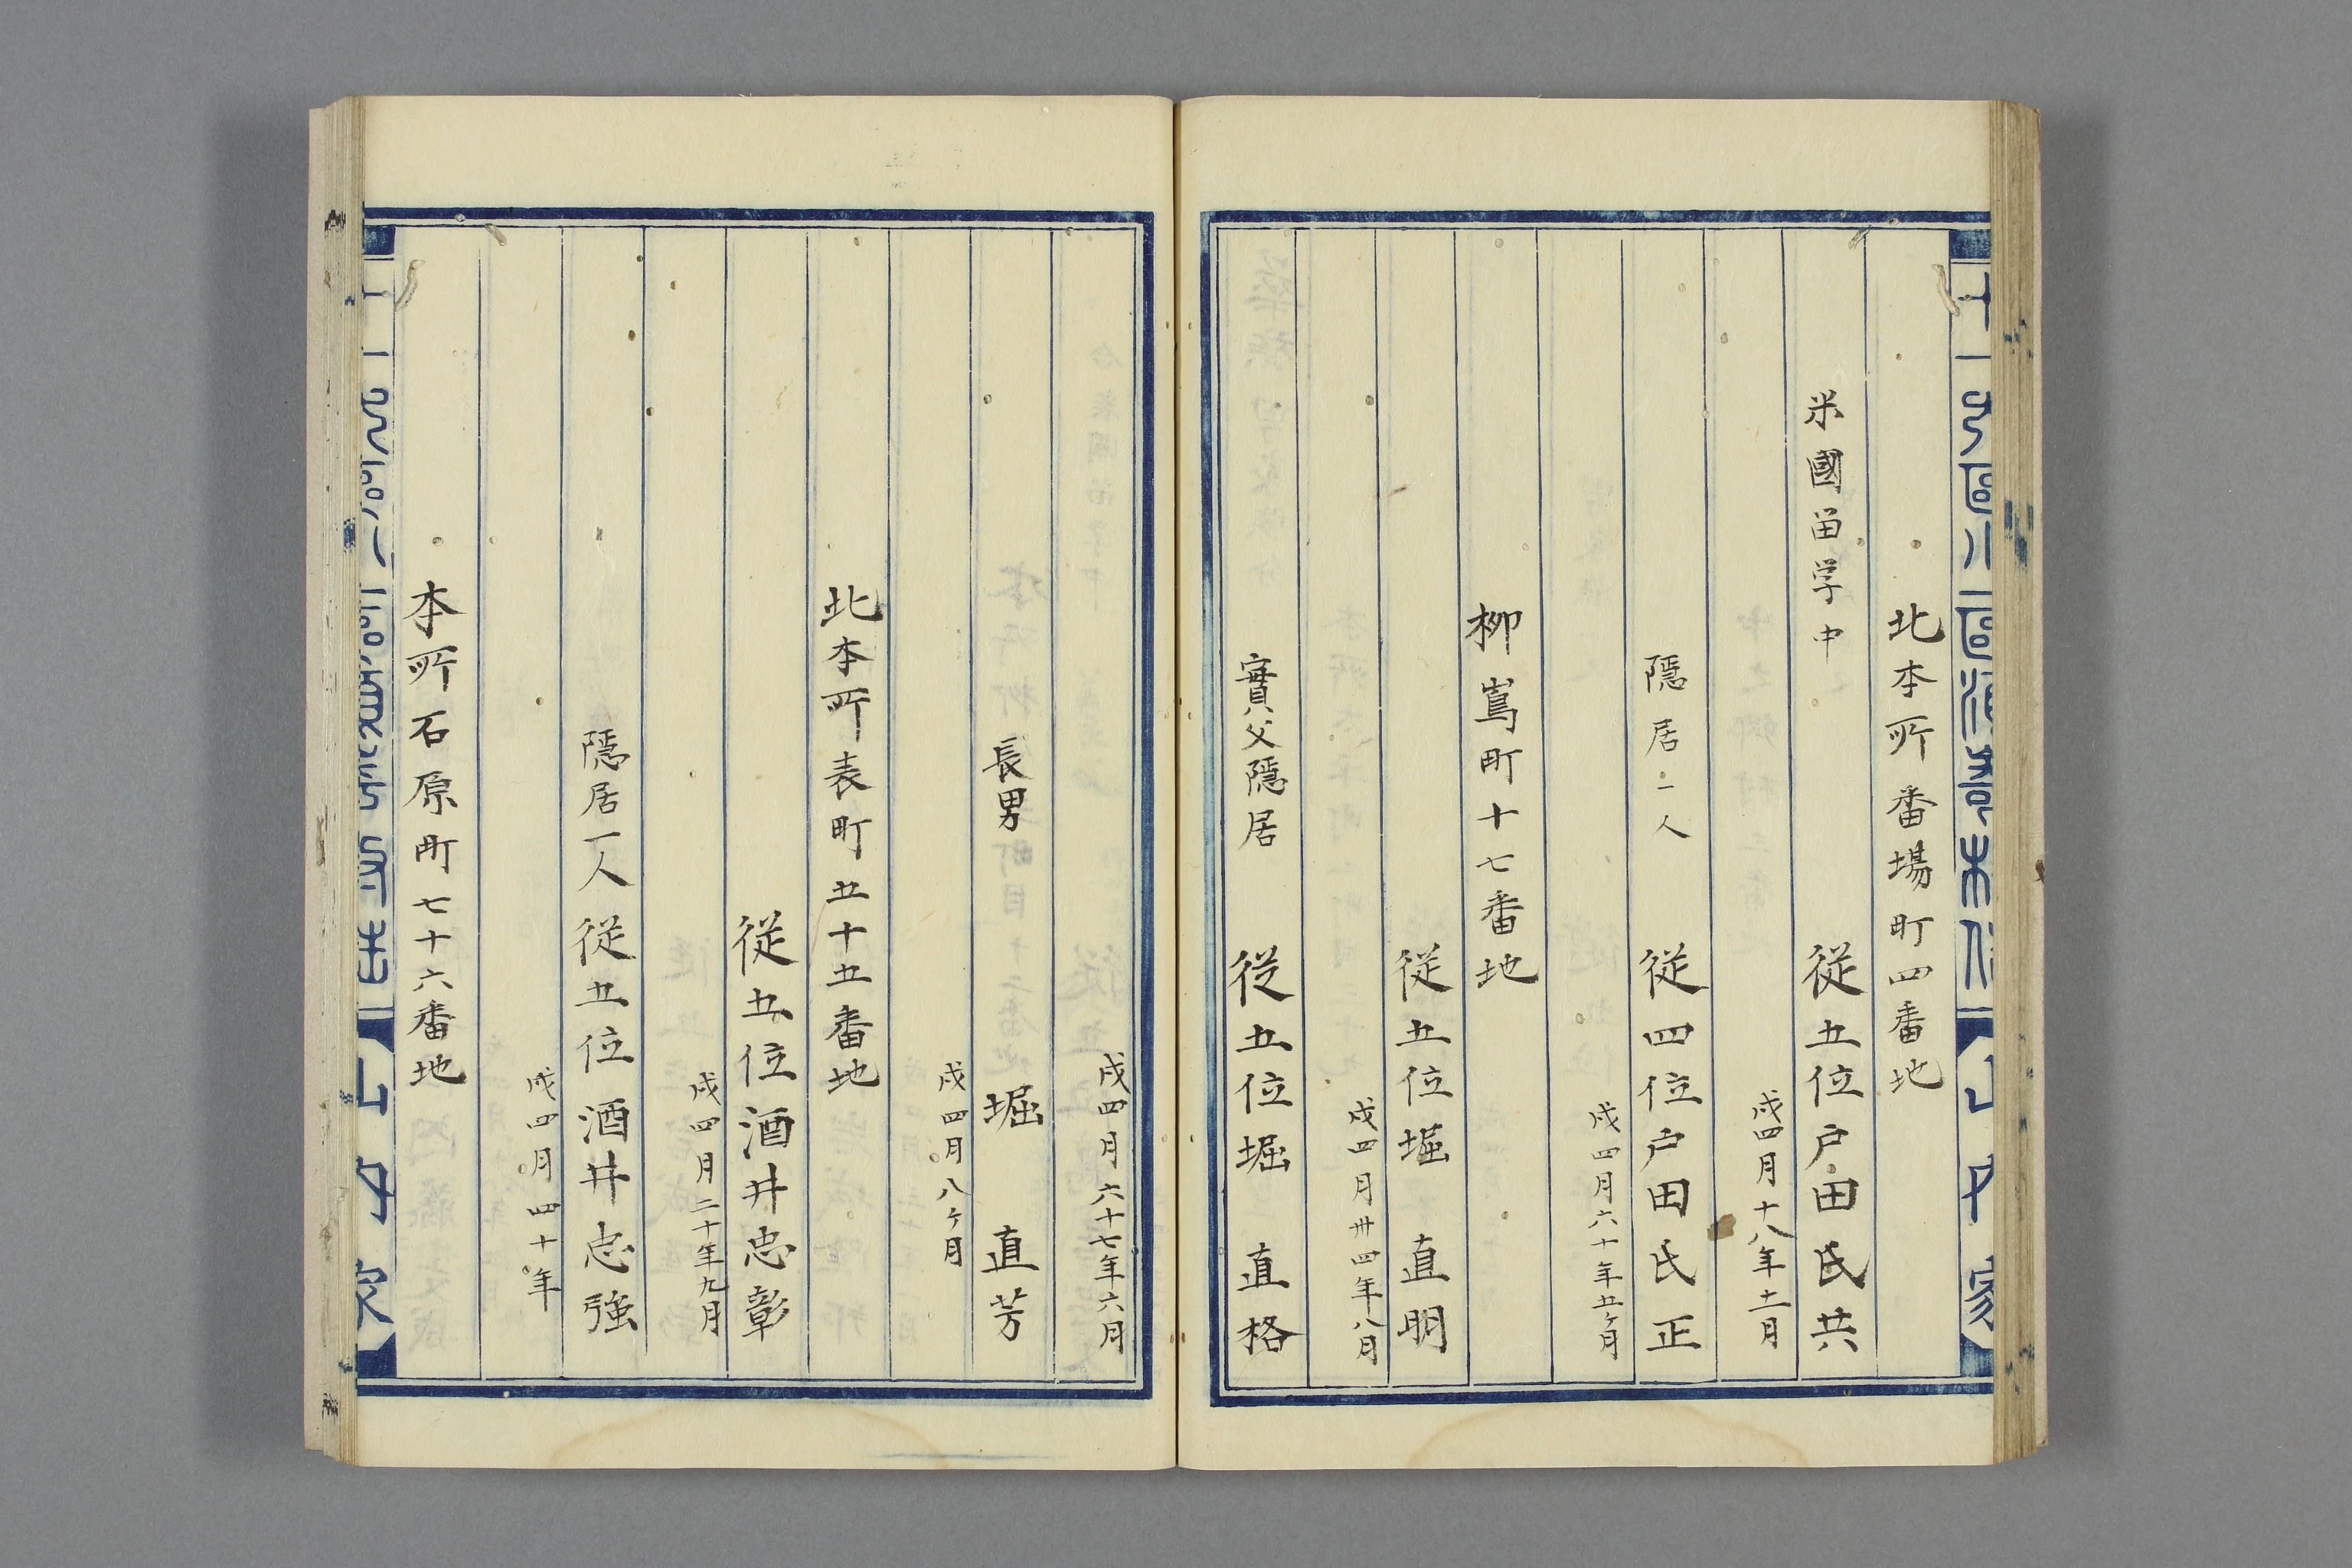 北本所番場町四番地
米國留学中　従五位戸田氏共
戌四月十八年十一月
隠居一人　従四位戸田氏正
戌四月六十年五ヶ月
柳嶌町十七番地
従五位堀　直明
戌四月卅四年八月
實父隠居　従五位堀　直格
戌四月六十七年六月
長男　堀　直芳
戌四月八ヶ月
北本所表町五十五番地
従五位酒井忠彰
戌四月二十年九月
隠居一人　従五位酒井忠強
戌四月四十年
本所石原町七十六番地